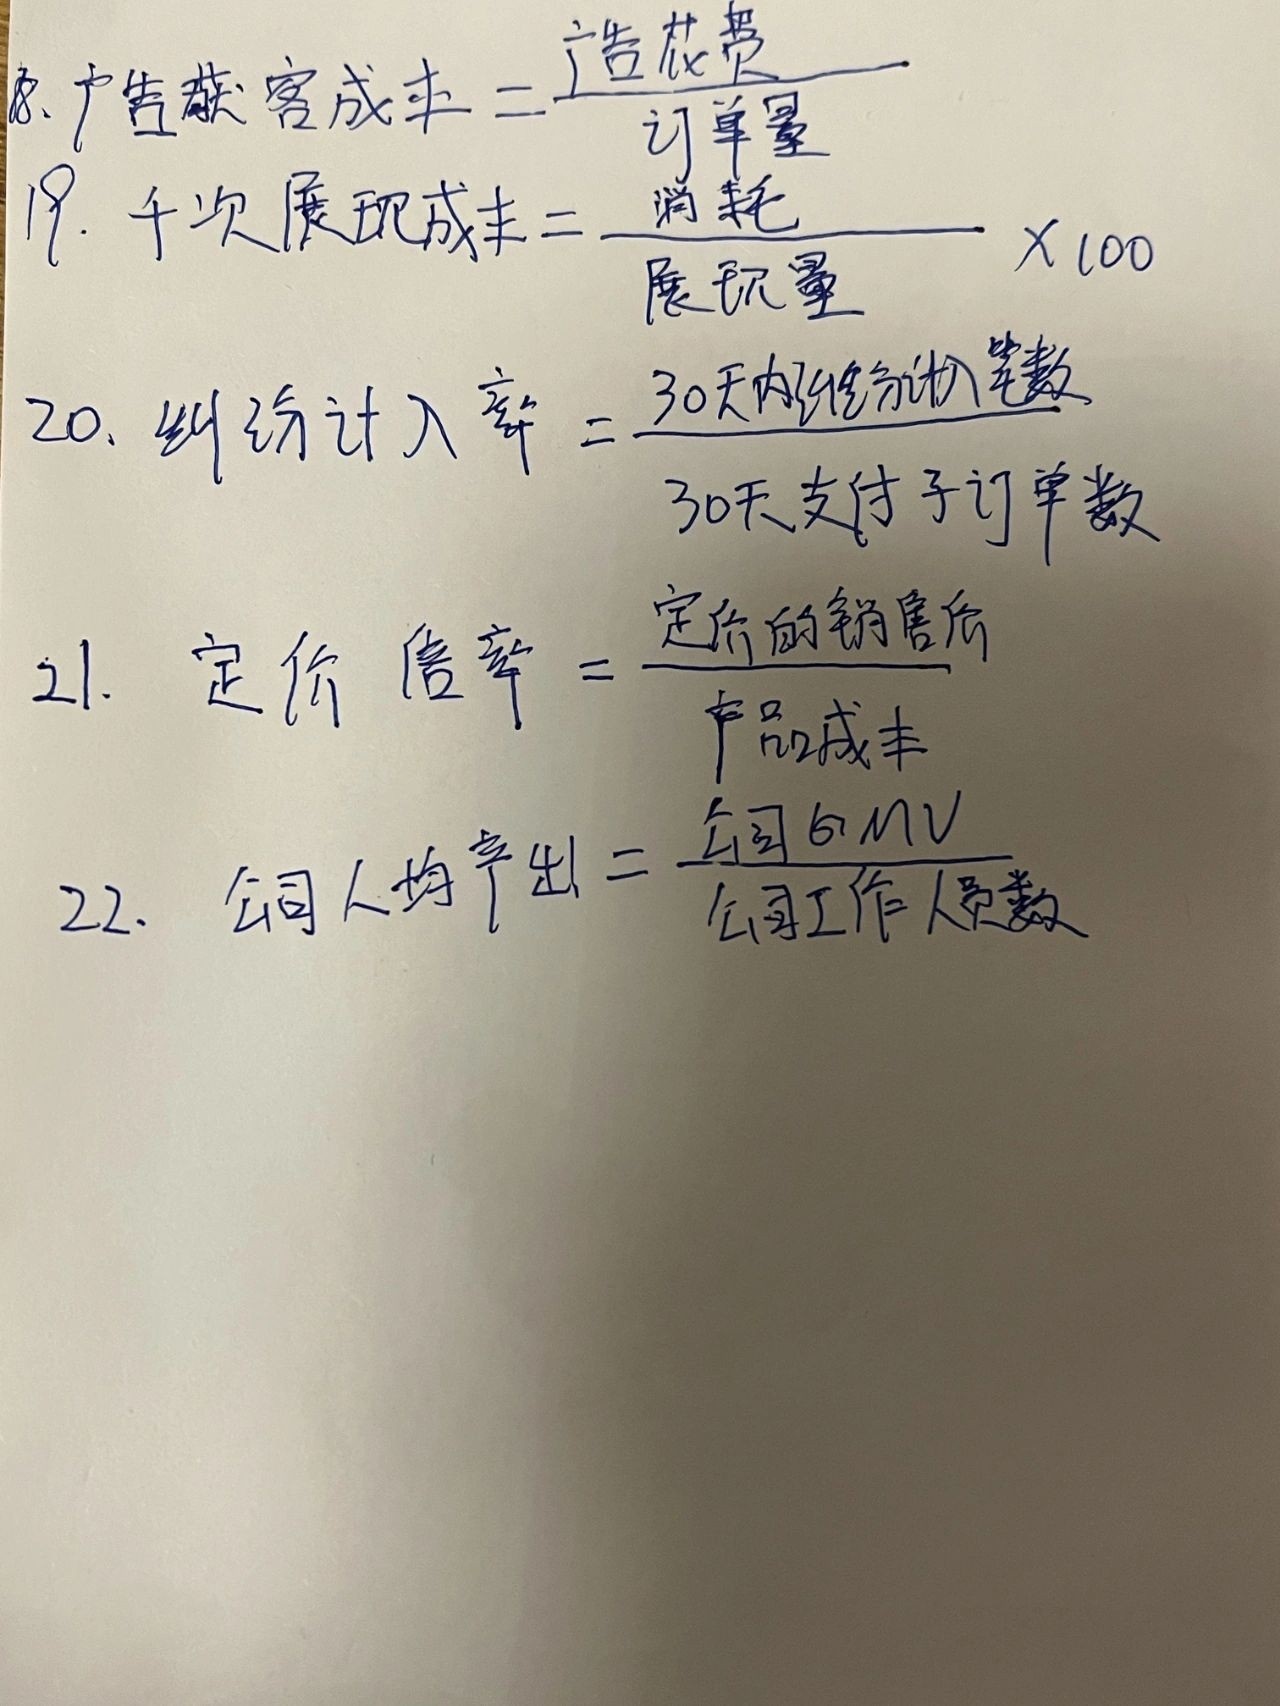 8. 广告获客成本 = 广告花费
订单量
19. 千次展现成本 = 消耗
展现量 × 100
20. 纠纷计入率 = 30天内纠纷计入笔数
30天支付子订单数
21. 定价倍率 = 定价的销售价
产品成本
22. 公司人均产出 = 公司GMV
公司工作人员数